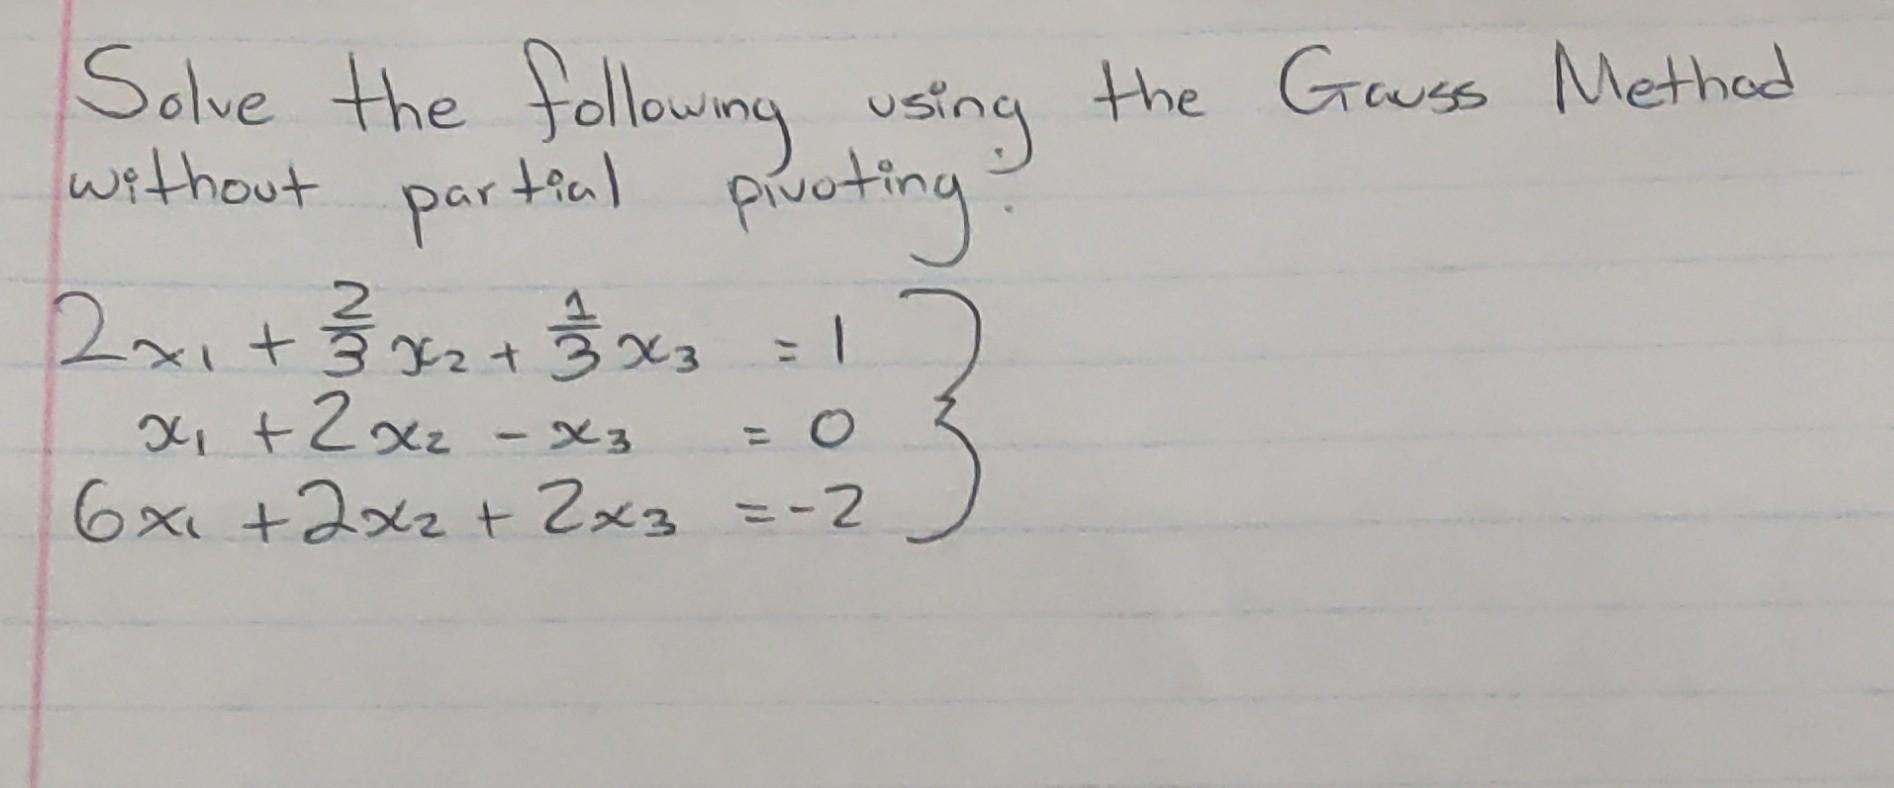 Solve the following using the Gauss Method
without partial pivoting:
2x₁ + 2/3 x₂ + 1/3 x₃ = 1
x₁ + 2x₂ - x₃ = 0
6x₁ + 2x₂ + 2x₃ = -2